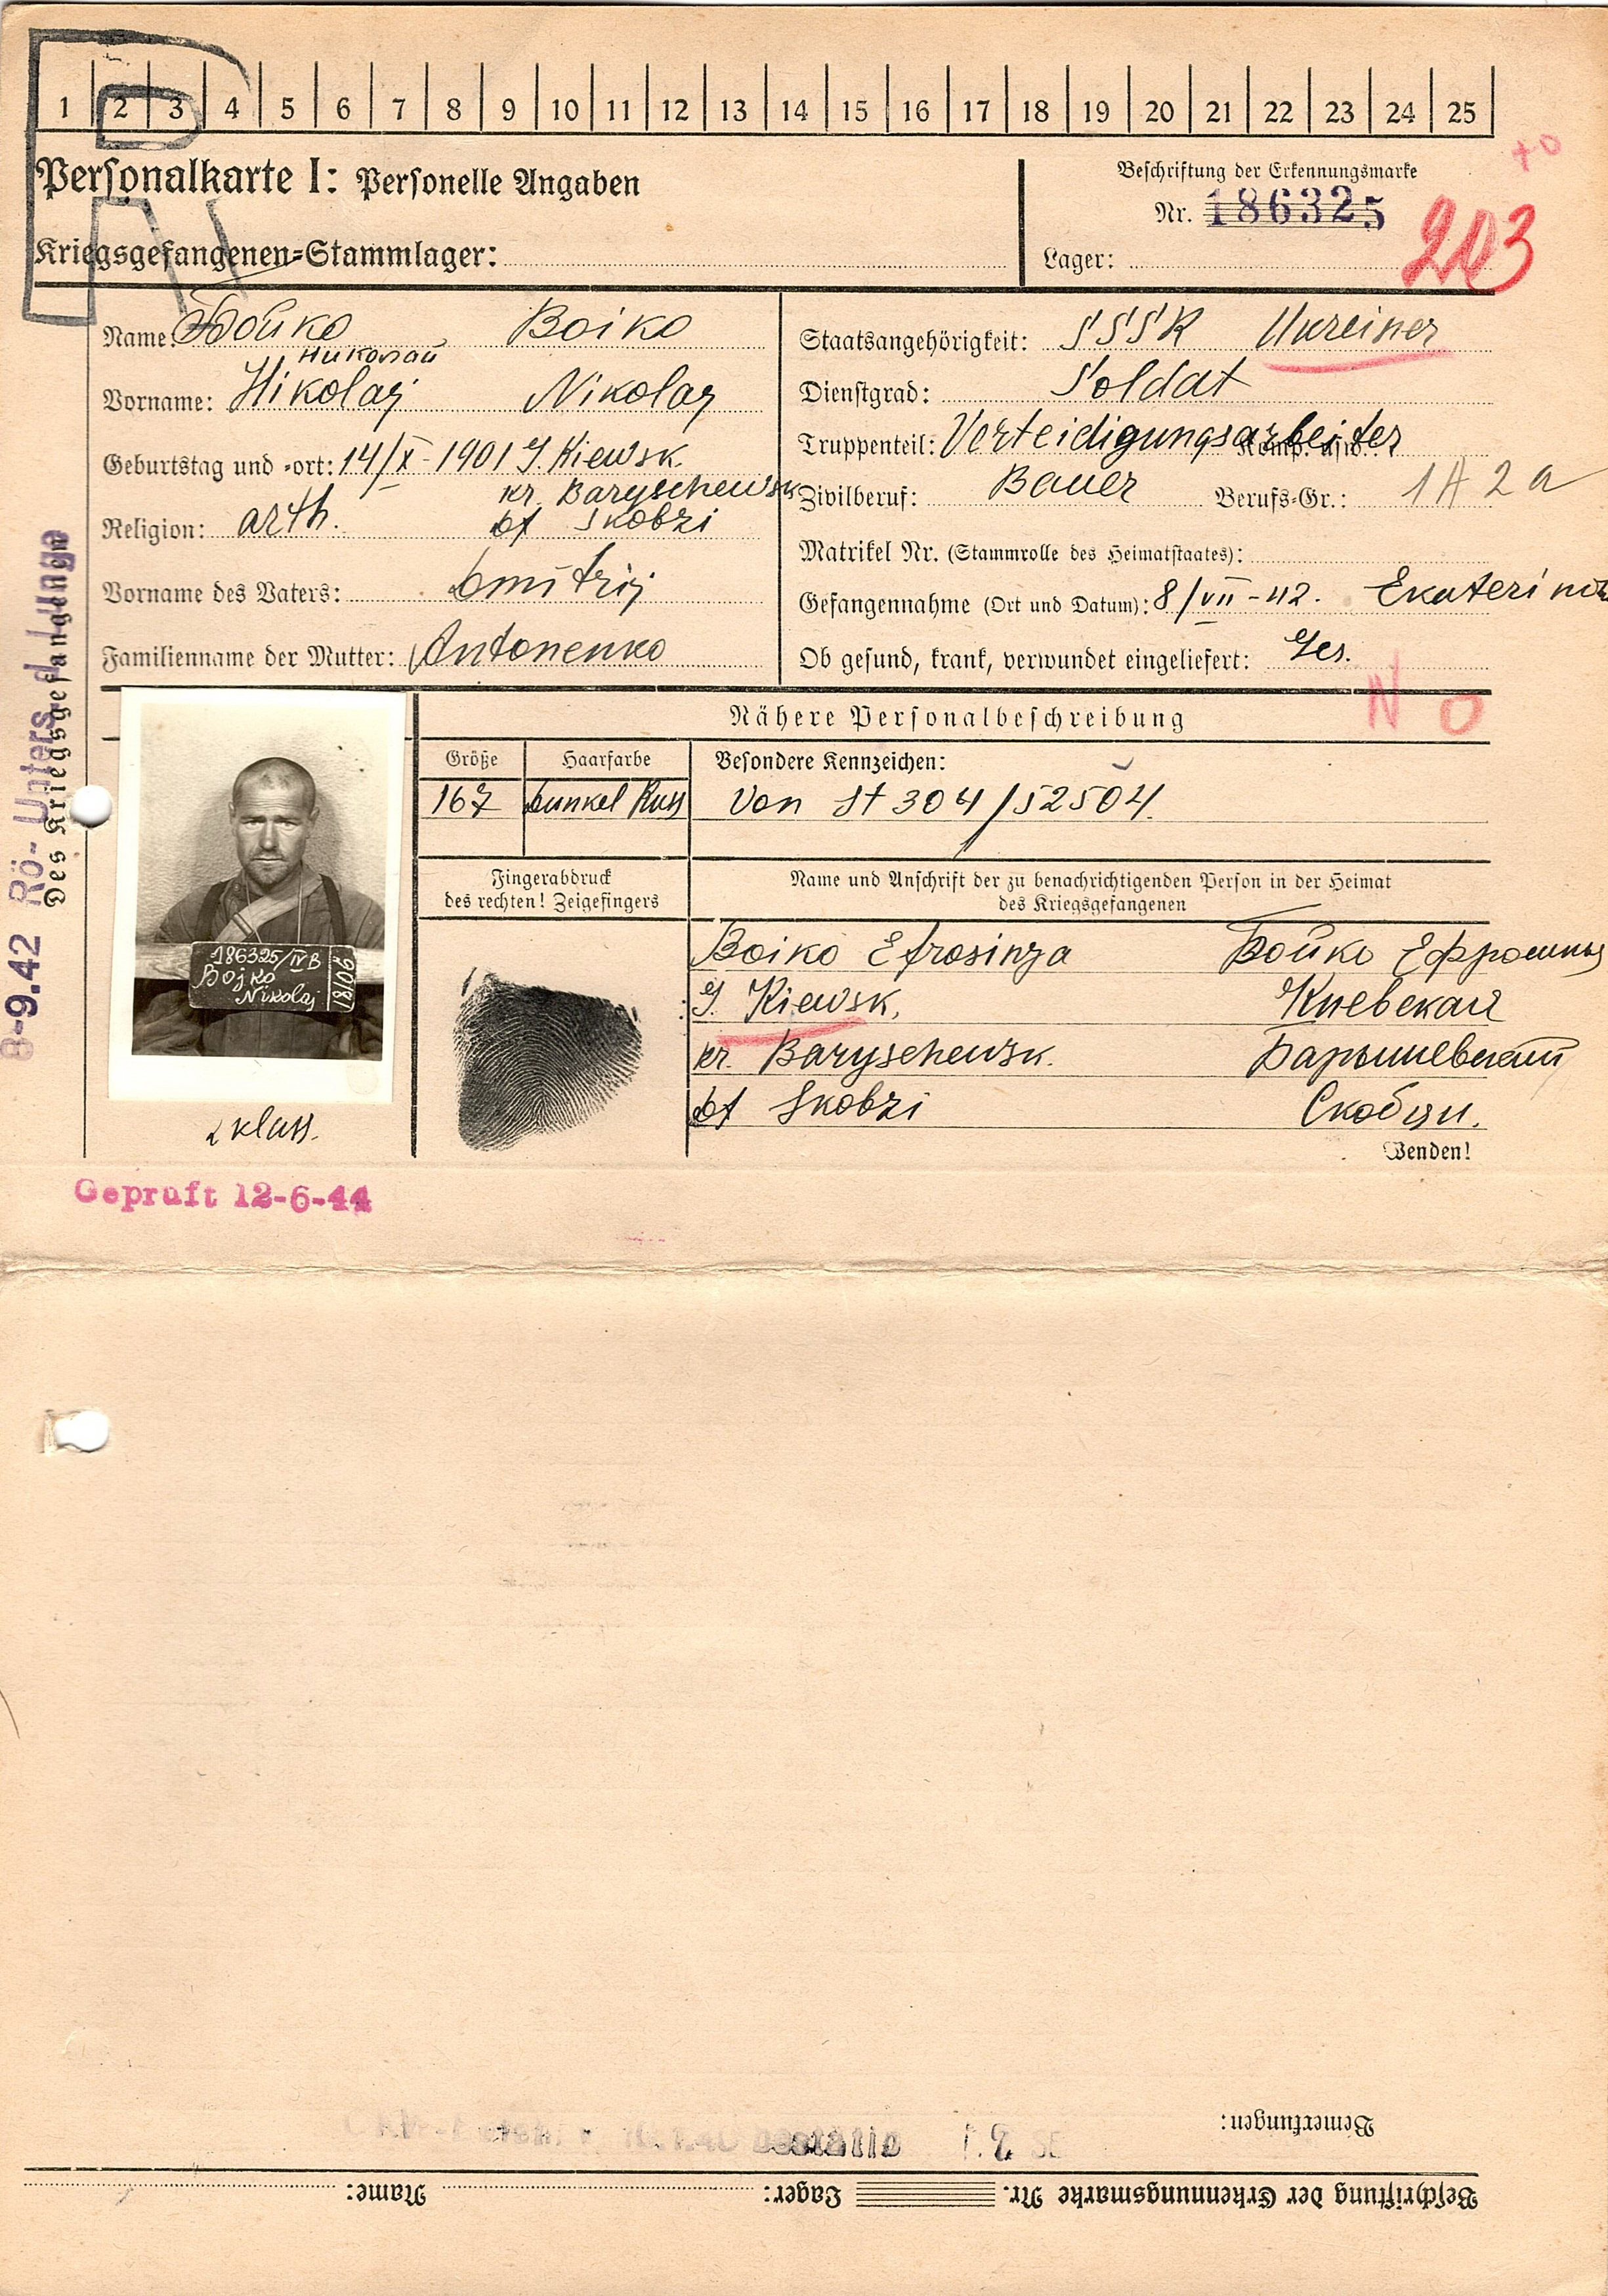 1 2 3 4 5 6 7 8 9 10 11 12 13 14 15 16 17 18 19 20 21 22 23 24 25
Personalkarte I: Personelle Angaben
Kriegsgefangenen-Stammlager:
Beschriftung der Erkennungsmarke
Nr. 186325
Lager:
203
Name: Бойко Boiko
Николай
Vorname: Nikolaj Nikolay
Geburtstag und -ort: 14/X - 1901 G. Kiewsk.
kr. Baryschewsk
Religion: orth. bf Skobzi
Vorname des Vaters: Dmitrij
Familienname der Mutter: Antonenko
Staatsangehörigkeit: SSSR Ukreiner
Dienstgrad: Soldat
Truppenteil: Verteidigungsarbeiter Komp. usw.:
Zivilberuf: Bauer Berufs-Gr.: 1A2a
Matrikel Nr. (Stammrolle des Heimatstaates):
Gefangennahme (Ort und Datum): 8/VII - 42.
Ob gesund, krank, verwundet eingeliefert: Ges.
N O
Des Kriegsgefangenen
8-9.42 Rö-Unters. Lunge
Nähere Personalbeschreibung
Größe Haarfarbe Besondere Kennzeichen:
167 Dunkel Russ Von St 304/52504.
Fingerabdruck
des rechten! Zeigefingers
Name und Anschrift der zu benachrichtigenden Person in der Heimat
des Kriegsgefangenen
186325/IVB
Bojko
Nikolaj
Boiko Efrosinya Бойко
G. Kiewsk, Киевская
kr. Baryschewsk. Барышевский
bf Skobzi Скобци.
Wenden!
klass.
Geprüft 12-6-44
Bemerkungen:
Beschriftung der Erkennungsmarke Nr. Lager: Name: